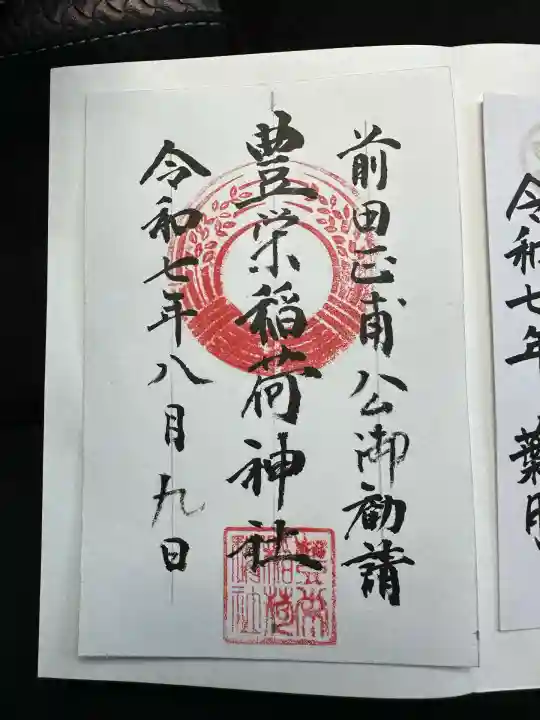 令和七年 葉月
前田正甫公御勧請
豊栄稲荷神社
令和七年八月九日
豊栄稲荷神社